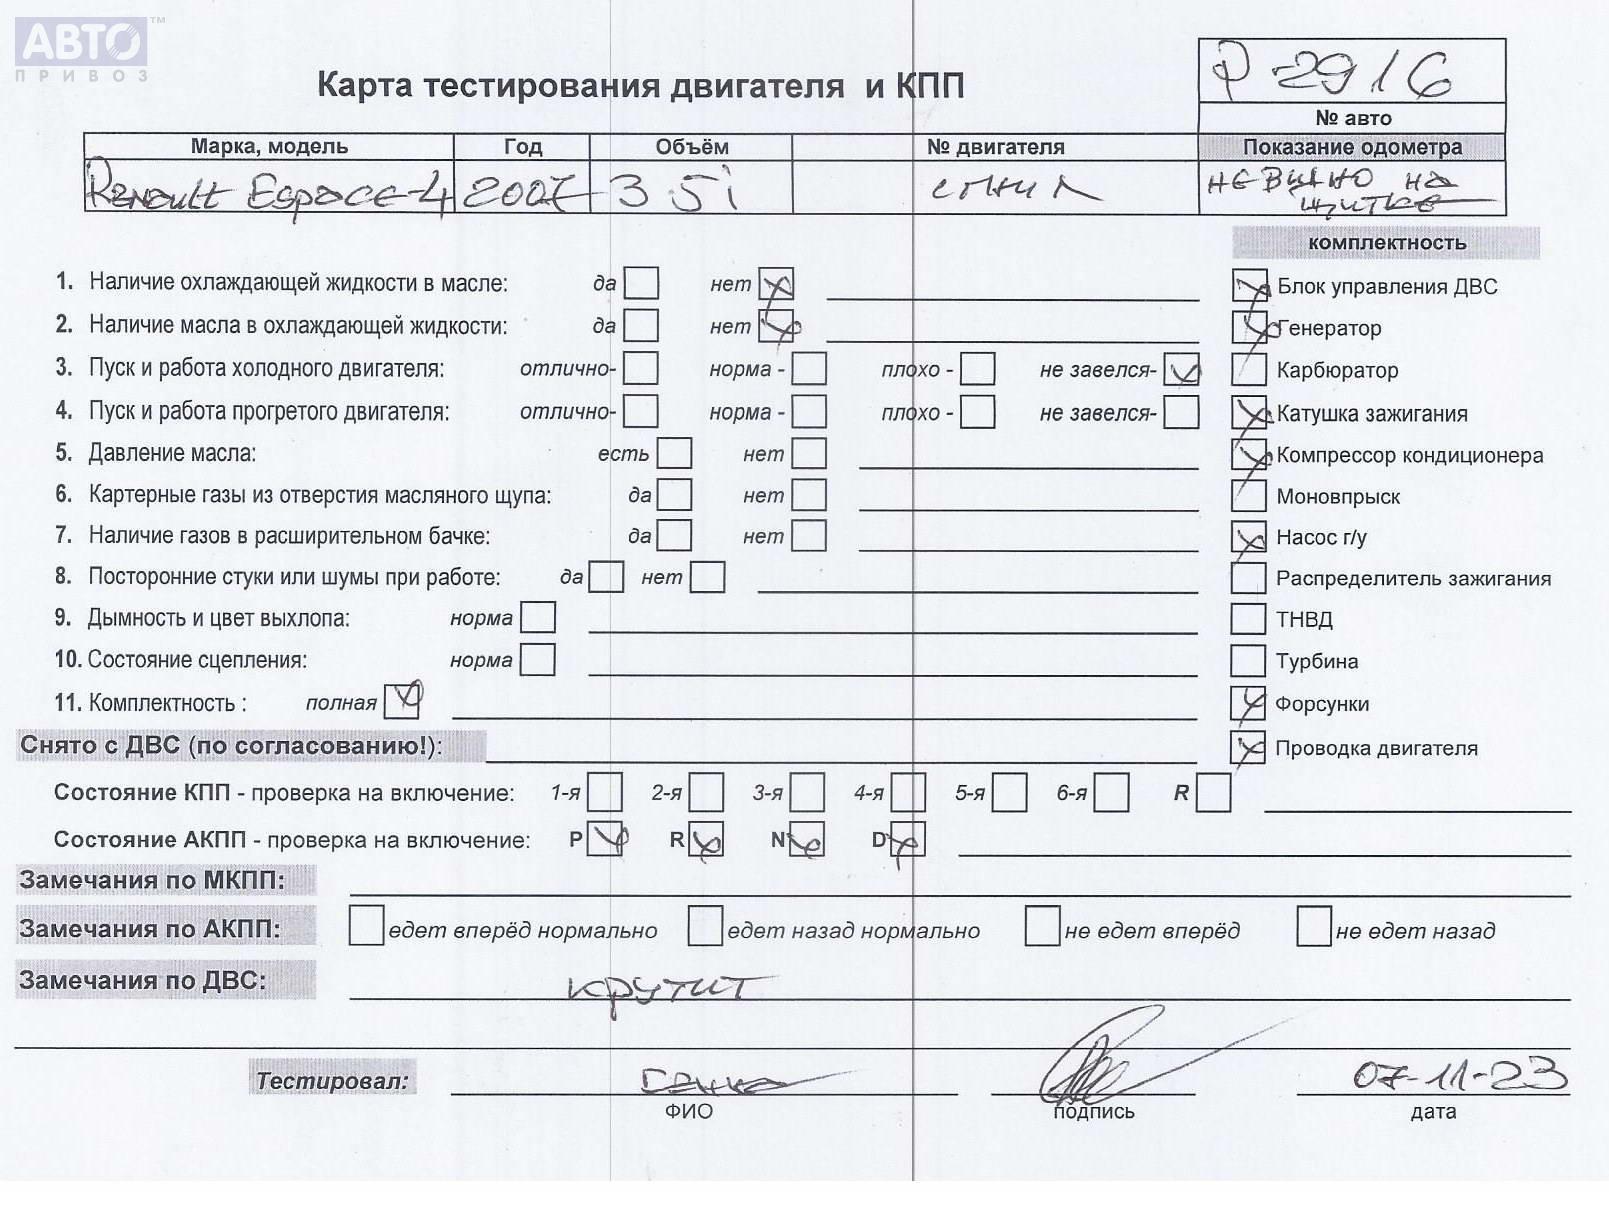 АВТО™
ПРИВОЗ
Карта тестирования двигателя и КПП
P-2916
№ авто
Марка, модель Год Объём № двигателя Показание одометра
Renault Espace-4 2007 3.5i спилил НЕ ВИДНО НА
ЩИТКЕ
комплектность
1. Наличие охлаждающей жидкости в масле: да нет
Блок управления ДВС
2. Наличие масла в охлаждающей жидкости: да нет
Генератор
3. Пуск и работа холодного двигателя: отлично- норма - плохо - не завелся-
Карбюратор
4. Пуск и работа прогретого двигателя: отлично- норма - плохо - не завелся-
Катушка зажигания
5. Давление масла: есть нет
Компрессор кондиционера
6. Картерные газы из отверстия масляного щупа: да нет
Моновпрыск
7. Наличие газов в расширительном бачке: да нет
Насос г/у
8. Посторонние стуки или шумы при работе: да нет
Распределитель зажигания
9. Дымность и цвет выхлопа: норма
ТНВД
10. Состояние сцепления: норма
Турбина
11. Комплектность : полная
Форсунки
Снято с ДВС (по согласованию!):
Проводка двигателя
Состояние КПП - проверка на включение: 1-я 2-я 3-я 4-я 5-я 6-я R
Состояние АКПП - проверка на включение: P R N D
Замечания по МКПП:
Замечания по АКПП: едет вперёд нормально едет назад нормально не едет вперёд не едет назад
Замечания по ДВС: крутит
Тестировал: 07-11-23
ФИО подпись дата